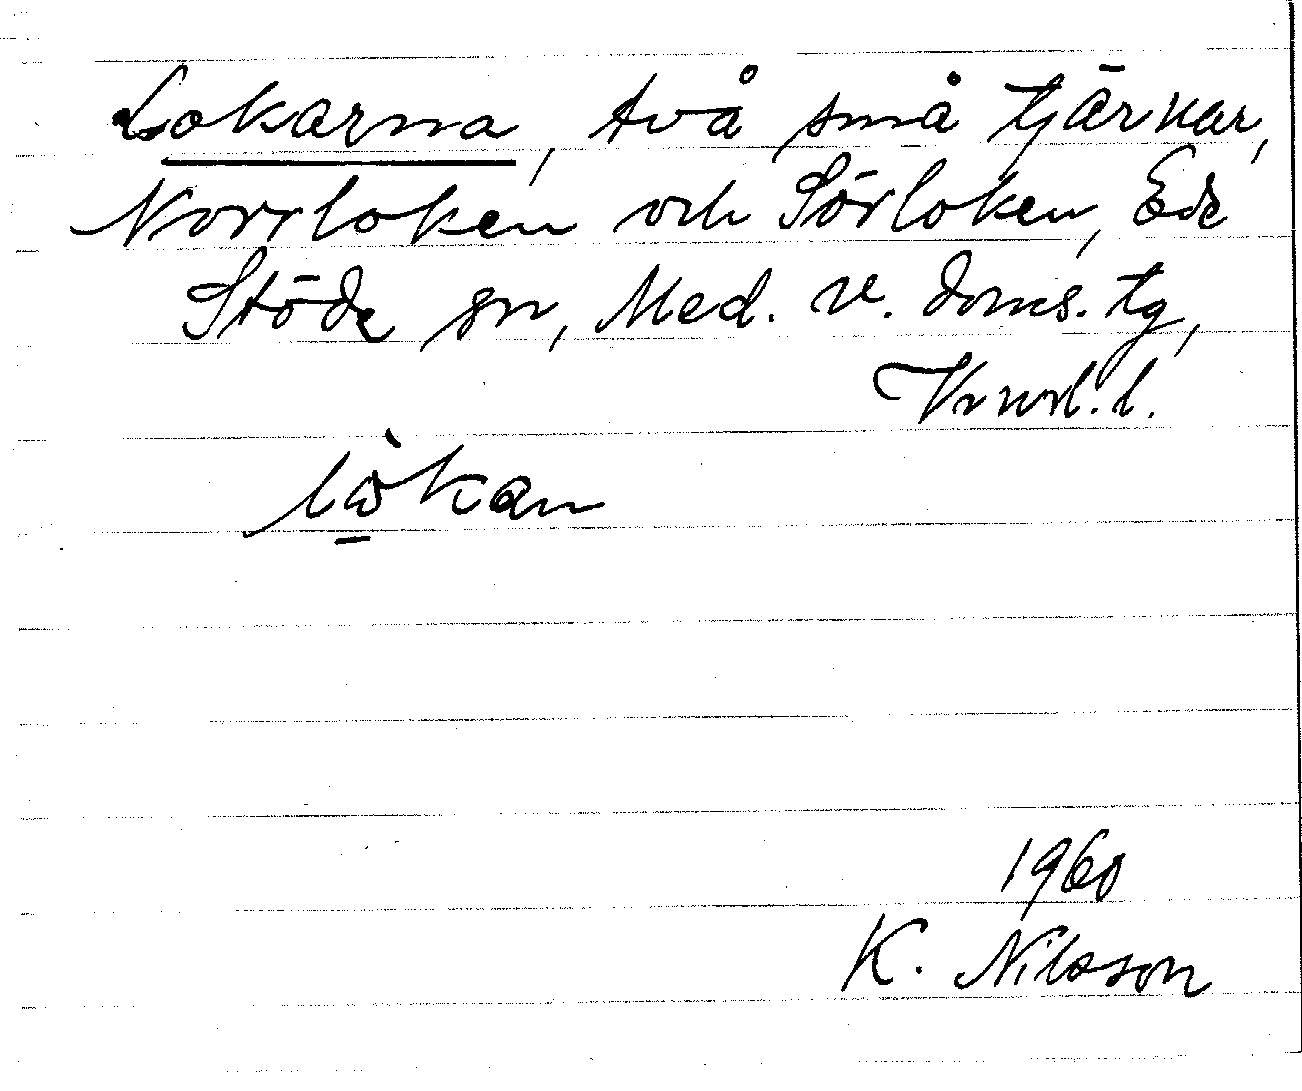 Lokarna, två små tjärnar,
Norrloken och Sörloken, Ede
Stöde sn, Med. v. doms. tg,
Vnorl. l.
lò̱kan
1960
K. Nilsson